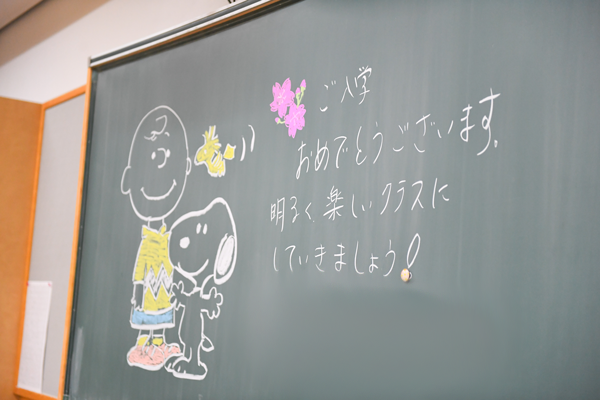 ご入学
おめでとうございます。
明るく楽しいクラスに
していきましょう!